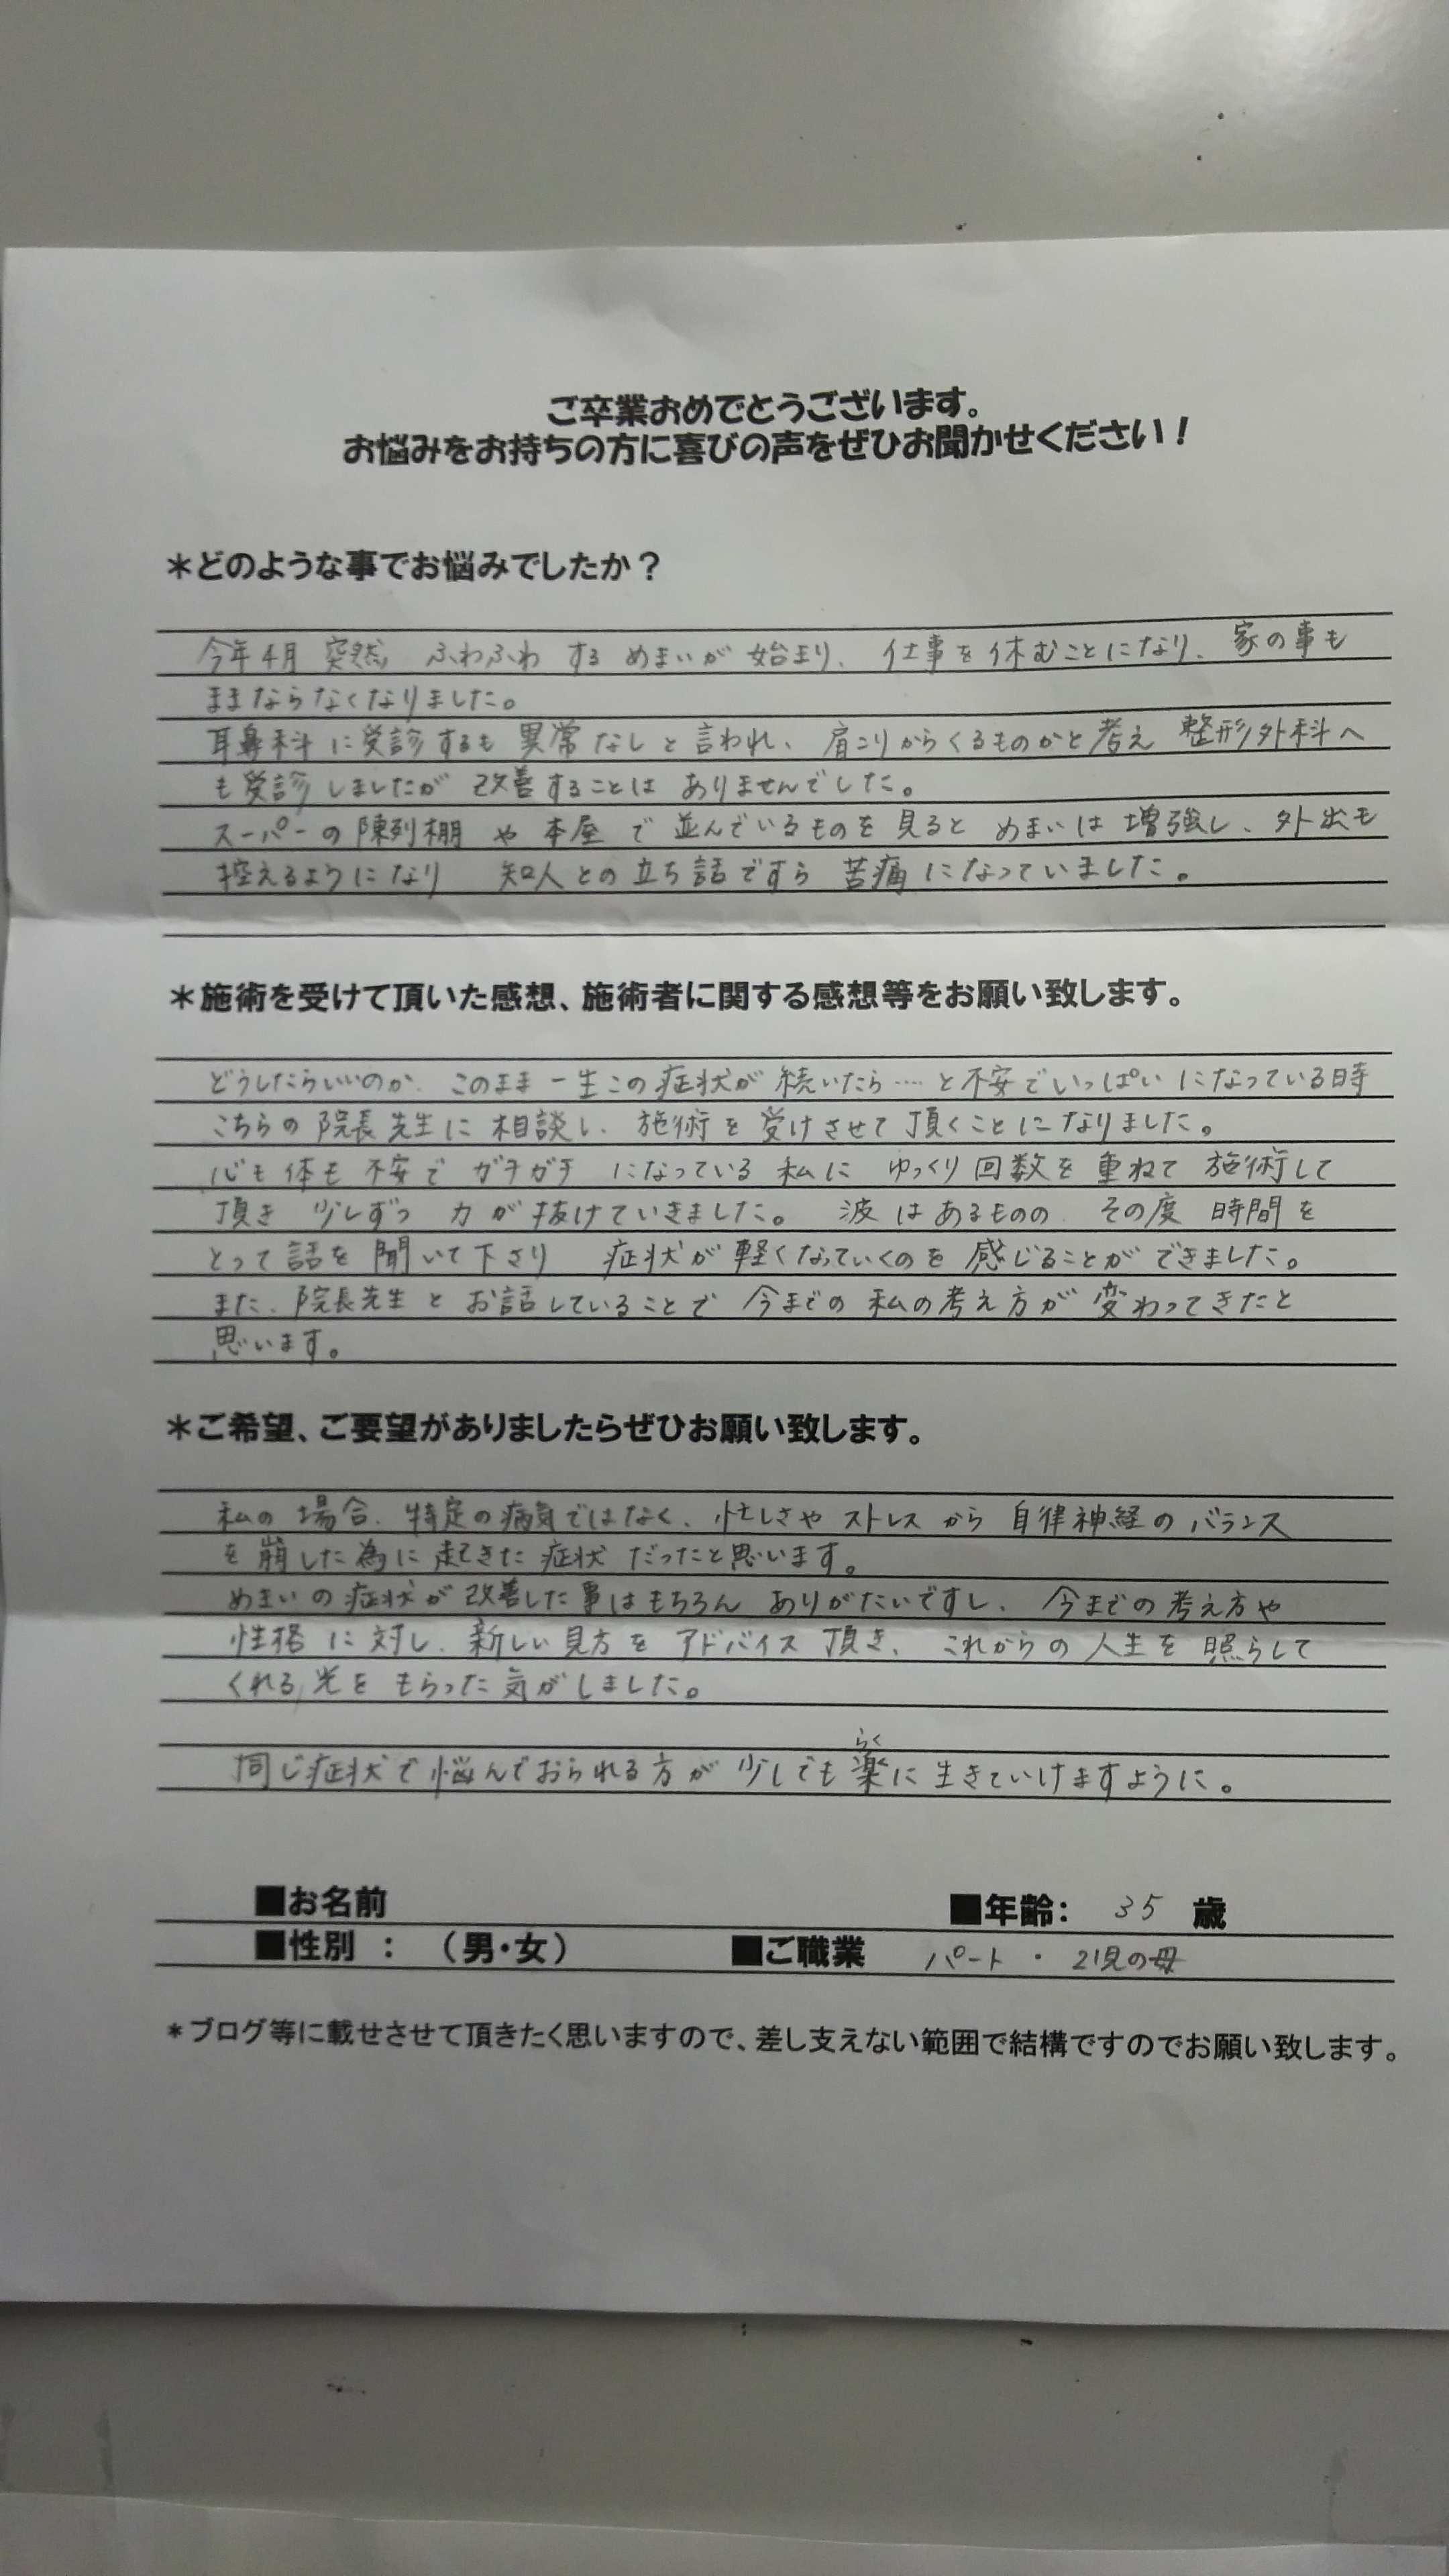 ご卒業おめでとうございます。
お悩みをお持ちの方に喜びの声をぜひお聞かせください！
＊どのような事でお悩みでしたか？
今年4月 突然 ふわふわ する めまいが 始まり、仕事を休むことになり、家の事も
ままならなくなりました。
耳鼻科に受診するも 異常なしと言われ、肩こりからくるものかと考え 整形外科へ
も受診しましたが 改善することは ありませんでした。
スーパーの陳列棚 や 本屋 で 並んでいるものを 見ると めまいは 増強し、外出も
控えるようになり 知人との立ち話ですら 苦痛になっていました。
＊施術を受けて頂いた感想、施術者に関する感想等をお願い致します。
どうしたらいいのか、このまま一生この症状が続いたら…と不安でいっぱいになっている時
こちらの院長先生に 相談し、施術を受けさせて頂くことになりました。
心も体も不安で ガチガチ になっている 私に ゆっくり回数を重ねて 施術して
頂き 少しずつ 力が抜けていきました。 波はあるものの、その度 時間を
とって話を聞いて下さり 症状が軽くなっていくのを感じることができました。
また、院長先生とお話していることで 今までの私の考え方が変わってきたと
思います。
＊ご希望、ご要望がありましたらぜひお願い致します。
私の場合、特定の病気ではなく、忙しさやストレスから自律神経のバランス
を崩した為に起きた症状だったと思います。
めまいの症状が改善した事はもちろん ありがたいですし、今までの考え方や
性格に対し、新しい見方をアドバイス頂き、これからの人生を照らして
くれる光をもらった気がしました。
同じ症状で悩んでおられる方が 少しでも楽に生きていけますように。
らく
■お名前 ■年齢： 35 歳
■性別 ：（男・女） ■ご職業 パート ・ 2児の母
＊ブログ等に載せさせて頂きたく思いますので、差し支えない範囲で結構ですのでお願い致します。